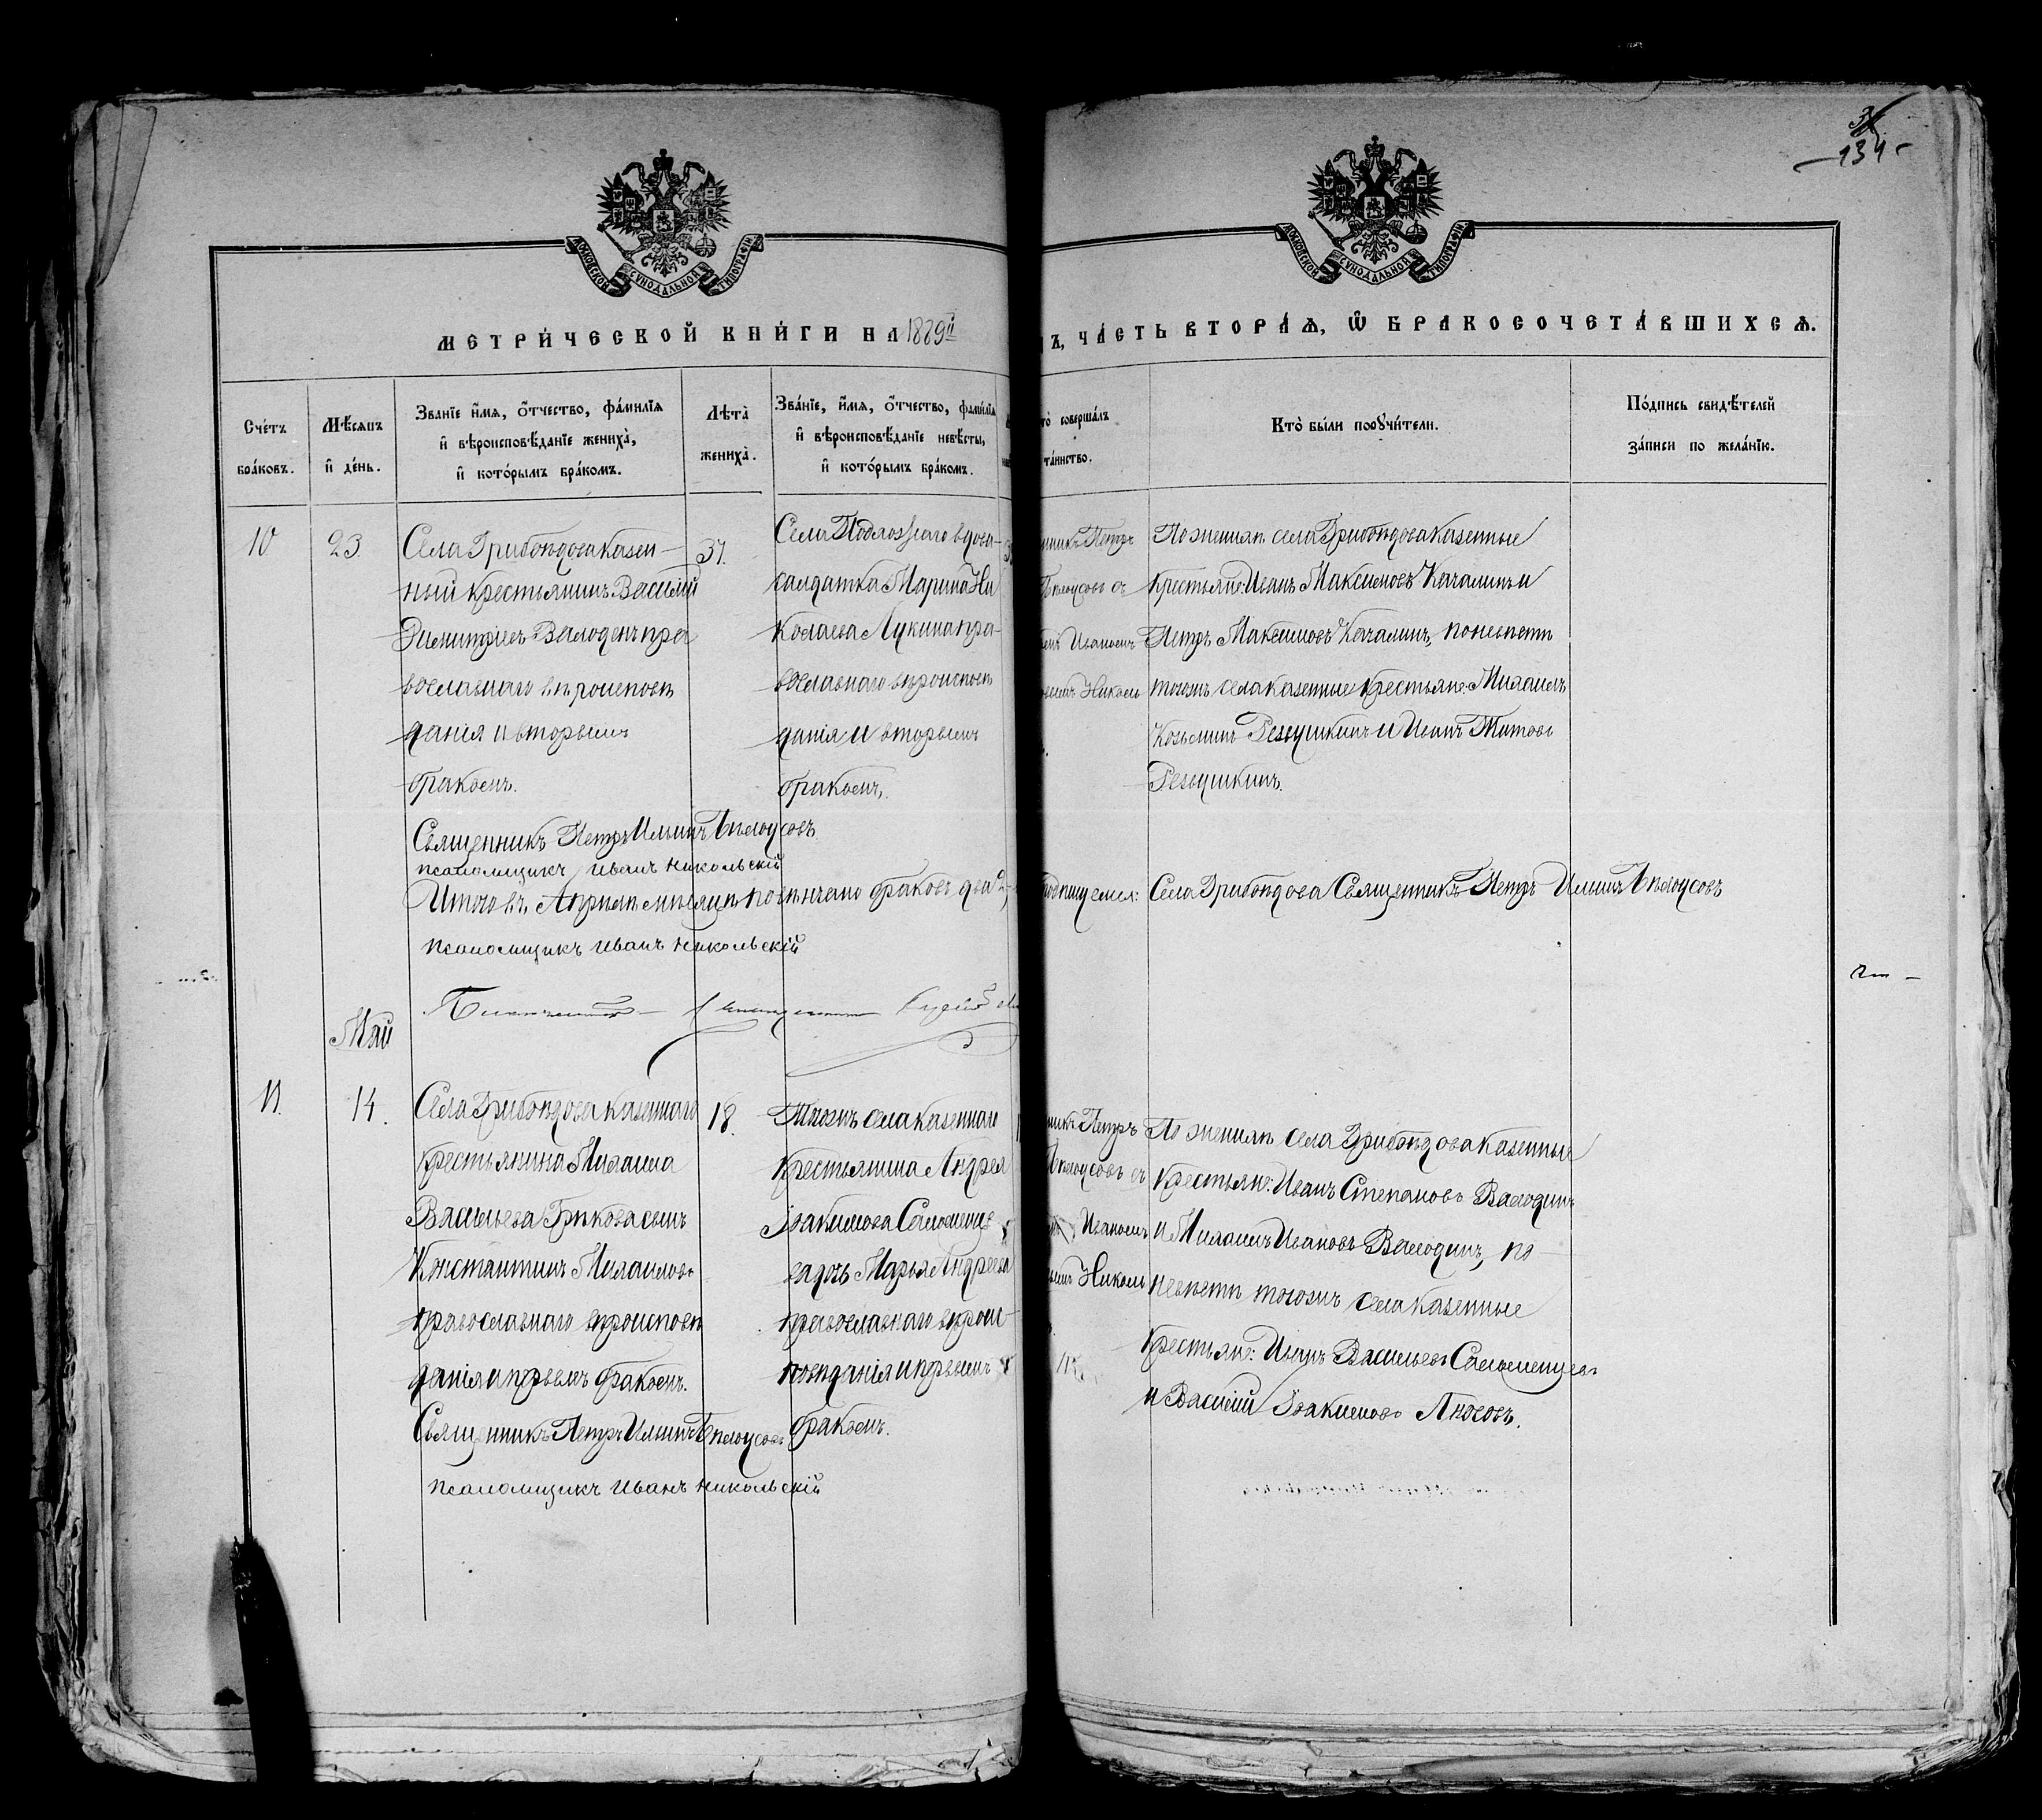 134
МОСКОВСКОЙ СѴНОДАЛЬНОЙ ТИПОГРАФІИ
МОСКОВСКОЙ СѴНОДАЛЬНОЙ ТИПОГРАФІИ
МЕТРИ́ЧЕСКОЙ КНИ́ГИ НА 1889й
Ъ, ЧА́СТЬ ВТОРА́Ѧ, Ѽ БРАКОСОЧЕТА́ВШИХСѦ.
Сче́тъ
бра́ковъ.
Мѣ́сяцъ
и҆ де́нь.
Зва́нїе и҆́мѧ, ѻ҆́тчество, фамилїѧ
и҆ вѣроисповѣ́данїе жениха̀,
и҆ кото́рымъ бра́комъ.
Лѣ́та
жениха̀.
Зва́нїе, и҆́мѧ, ѻ҆́тчество, фами́лїѧ
и҆ вѣроисповѣ́данїе невѣ́сты,
и҆ кото́рымъ бра́комъ.
то̀ соверша́лъ
та́инство.
Кто̀ бы́ли порꙋчи́тели.
По́дпись свидѣ́телей
за́писи по жела́нїю.
10
23
Села Грибоѣдова казен-
ный крестьянинъ Василій
Димитріевъ Володинъ пра
вославнаго вѣроисповѣ
данія и вторымъ
бракомъ.
37.
Села вдова
солдатка Марина Ни
колаева Лукина пра-
вославнаго вѣроисповѣ
данія и вторымъ
бракомъ.
никъ Петръ
Бѣлоусовъ съ
Иваномъ
Николь
По женихѣ села Грибоѣдова казенные
крестьяне: Иванъ Максимовъ Качалинъ и
Петръ Максимовъ Качалинъ, по невѣстѣ
тогожъ села казенные крестьяне: Михаилъ
Козьминъ Резвушкинъ и Иванъ Титовъ
Резвушкинъ.
Священникъ Петръ Ильинъ Бѣлоусовъ
псаломщикъ Иванъ Никольскій
Итого въ Апрѣлѣ мѣсяцѣ повѣнчано браковъ два
подпишемся: Села Грибоѣдова Священникъ Петръ Ильинъ Бѣлоусовъ
псаломщикъ Иванъ Никольскій
Май
11.
14.
Села Грибоѣдова казеннаго
крестьянина Михаила
Васильева Грѣкова сынъ
Константинъ Михаиловъ
православнаго вѣроисповѣ
данія и первымъ бракомъ.
18.
Тогожъ села казеннаго
крестьянина Андрея
Іоакимова Соломенце
ва дочь Марья Андреева
православнаго вѣроис-
повѣданія и первымъ
бракомъ.
никъ Петръ
Бѣлоусовъ съ
Иваномъ
Николь
По женихѣ села Грибоѣдова казенные
крестьяне: Иванъ Степановъ Володинъ
и Михаилъ Ивановъ Володинъ, по
невѣстѣ тогожъ села казенные
крестьяне: Иванъ Васильевъ Соломенцевъ
и Василій Іоакимовъ Аносовъ.
Священникъ Петръ Ильинъ Бѣлоусовъ
псаломщикъ Иванъ Никольскій